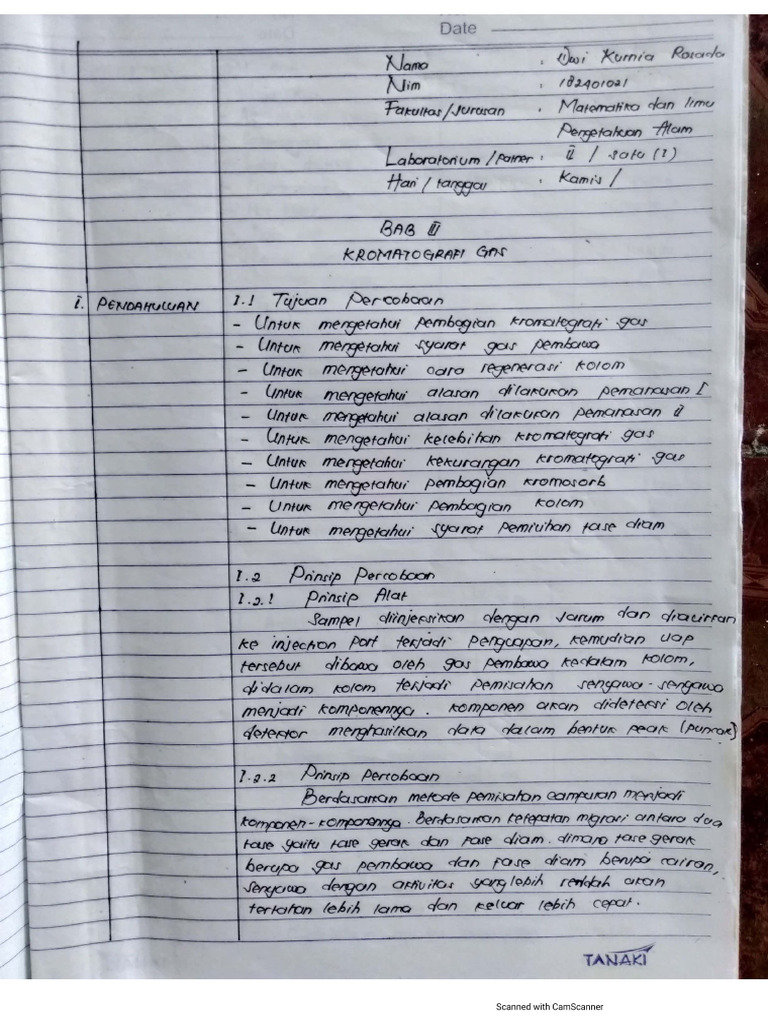 Date
Nama : Dwi Kurnia Rosada
Nim : 182401021
Fakultas/Jurusan : Matematika dan Ilmu
Pengetahuan Alam
Laboratorium/Patner : II / satu (1)
Hari / tanggal : Kamis /
BAB II
KROMATOGRAFI GAS
I. PENDAHULUAN
1.1 Tujuan Percobaan
- Untuk mengetahui pembagian kromatografi gas
- Untuk mengetahui syarat gas pembawa
- Untuk mengetahui cara regenerasi kolom
- Untuk mengetahui alasan dilakukan pemanasan I
- Untuk mengetahui alasan dilakukan pemanasan II
- Untuk mengetahui kelebihan kromatografi gas
- Untuk mengetahui kekurangan kromatografi gas
- Untuk mengetahui pembagian kromosorb
- Untuk mengetahui pembagian kolom
- Untuk mengetahui syarat pemilihan fase diam
1.2 Prinsip Percobaan
1.2.1 Prinsip Alat
Sampel diinjeksikan dengan jarum dan dialirkan
ke injection port terjadi penguapan, kemudian uap
tersebut dibawa oleh gas pembawa kedalam kolom,
didalam kolom terjadi pemisahan senyawa-senyawa
menjadi komponennya. komponen akan dideteksi oleh
detektor menghasilkan data dalam bentuk peak (puncak)
1.2.2 Prinsip Percobaan
Berdasarkan metode pemisahan campuran menjadi
komponen-komponennya. Berdasarkan ketepatan migrasi antara dua
fase yaitu fase gerak dan fase diam. dimana fase gerak
berupa gas pembawa dan fase diam berupa cairan,
senyawa dengan aktivitas yang lebih rendah akan
tertahan lebih lama dan keluar lebih cepat.
TANAKI
Scanned with CamScanner